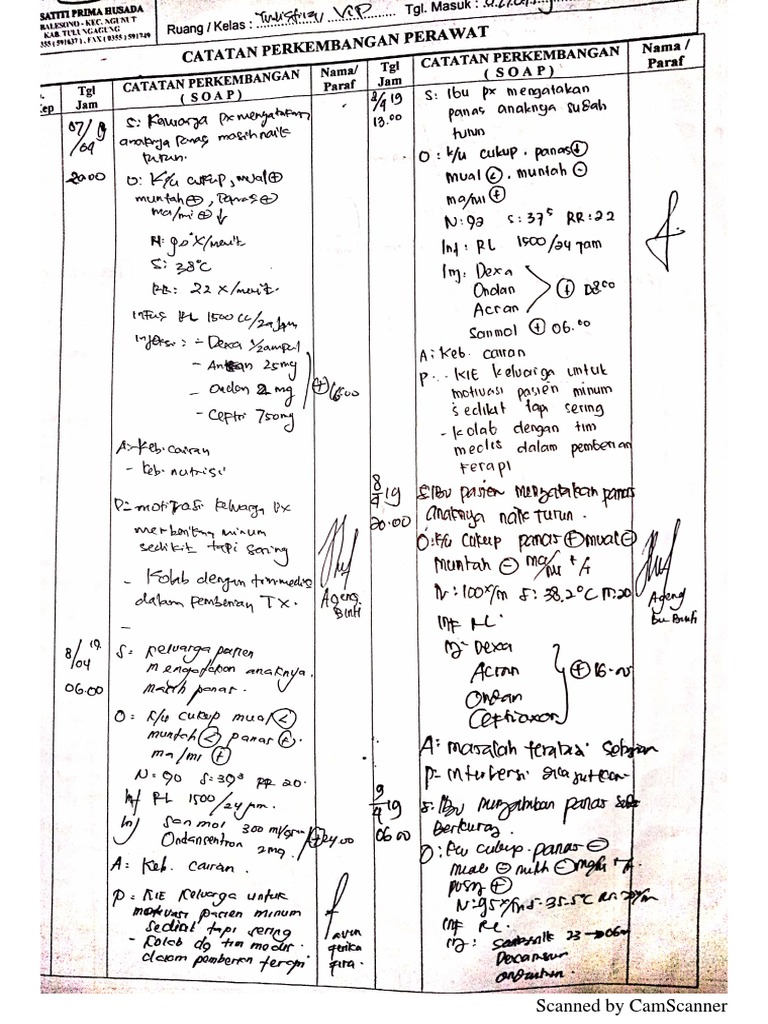 SATITI PRIMA HUSADA
BALESONO - KEC. NGUNUT
KAB. TULUNGAGUNG
Ruang / Kelas : VIP
Tgl. Masuk :
CATATAN PERKEMBANGAN PERAWAT
Tgl
Jam
CATATAN PERKEMBANGAN
( S O A P )
Nama/
Paraf
07/ 19
/04
20.00
S: Keluarga px mengatakan
anaknya panas masih naik
turun.
O: K/u cukup, mual ⊕
muntah ⊕, panas ⊕
ma/mi ⊕ ↓
N: 90 x/menit
S: 38°C
RR: 22 x/menit
Infus RL 1500 cc/24 jam
Injeksi: - Dexa 1/2 ampul
25 mg
- Ondan 2 mg
- Ceftri 750mg
⊕ 16.00
A: Keb. cairan
- Keb. nutrisi
P: motivasi keluarga px
memberikan minum
sedikit tapi sering
- Kolab dengan tim medis
dalam pemberian TX.
-
Ageng
Binti
8/04 19
06.00
S = Keluarga pasien
mengatakan anaknya
masih panas.
O = K/u cukup mual <
muntah < panas ⊕
ma/mi ⊕
N = 90 S = 39³ RR 20.
Inf RL 1500/24 jam.
Inj Sanmol 300 mg
Ondansentron 2mg.
A = Keb. cairan.
P = KIE keluarga untuk
motivasi pasien minum
sedikit tapi sering
- Kolab dg tim medis
dalam pemberian terapi
Tgl
Jam
CATATAN PERKEMBANGAN
( S O A P )
Nama /
Paraf
8/4 19
13.00
S: Ibu px mengatakan
panas anaknya sudah
turun
O: k/u cukup. panas ⊕
mual <, muntah ⊖
ma/mi ⊕
N: 92 S: 37⁵ RR: 22
Inf: RL 1500/24 jam
Inj: Dexa
Ondan
Acran
⊕ 08.00
Sanmol ⊕ 06.00
A: Keb. cairan
P: - KIE keluarga untuk
motivasi pasien minum
sedikit tapi sering
- Kolab dengan tim
medis dalam pemberian
terapi
8/4 19
20.00
S: Ibu pasien mengatakan panas
anaknya naik turun.
O: k/u cukup panas ⊕ mual ⊖
muntah ⊖ ma/mi +/+
N: 100x/m S: 38.2°C 20
Inf RL
Inj: Dexa
Acran
Ondan
Ceftriaxon
⊕ 16.00
A: masalah teratasi sebagian
P: Intervensi dilanjutkan
Ageng
Bu Binti
9/4 19
06.00
S: Ibu mengatakan panas
berkurang.
O: k/u cukup. panas ⊖
mual ⊖
pusing ⊕
N: 95x/m S: 35.5°C
Inf RL.
Inj:
Scanned by CamScanner